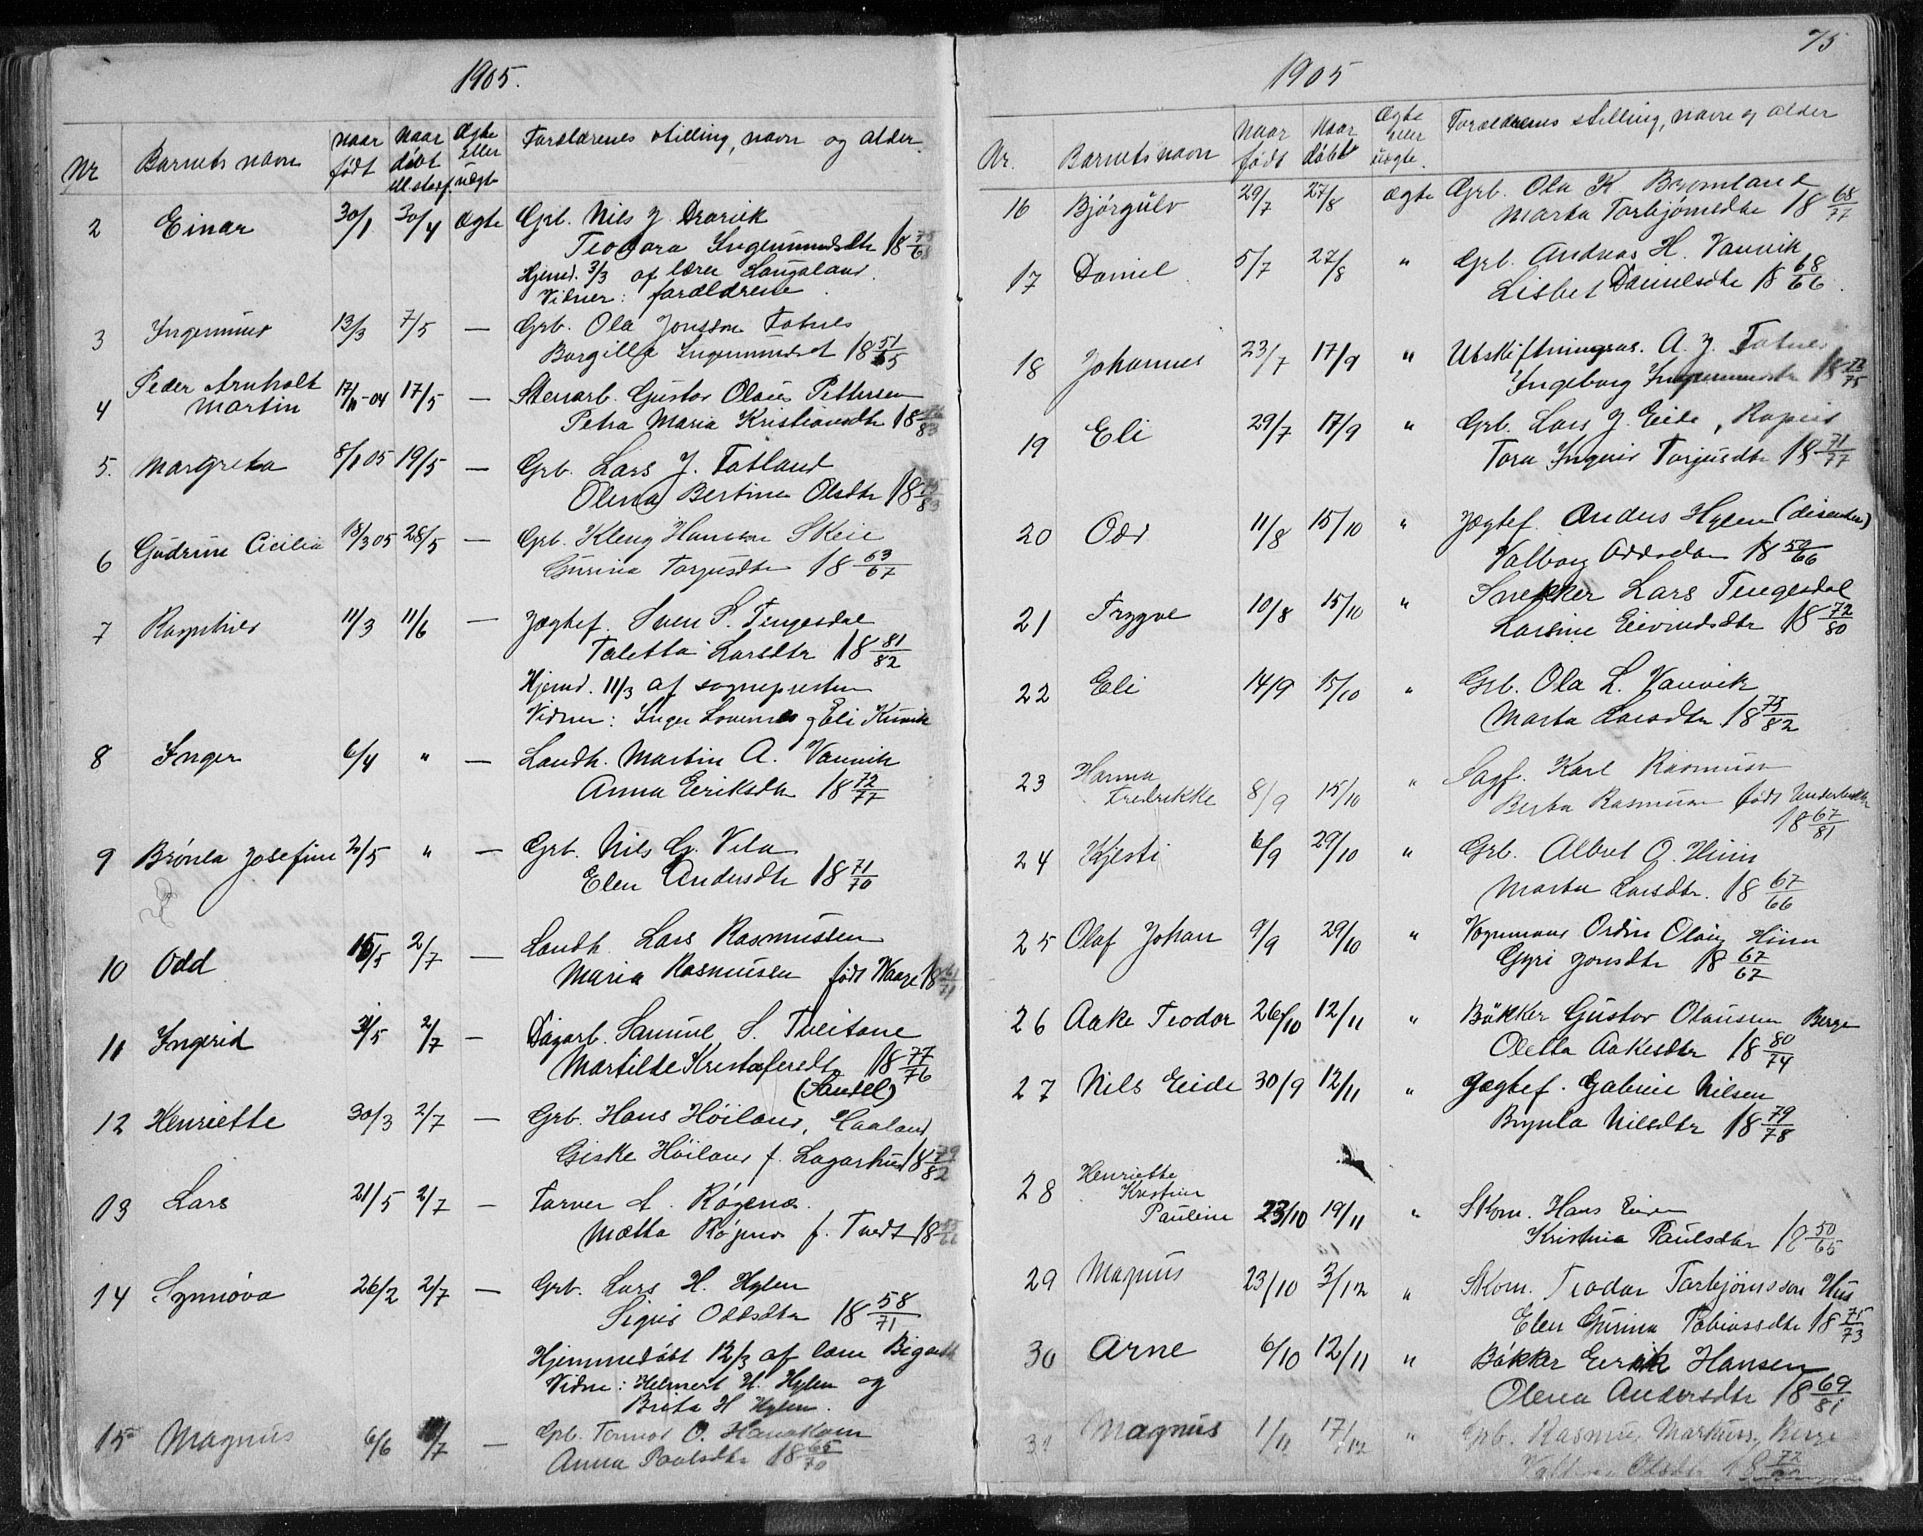 1905.
Nr
Barnets navn
Naar født
Naar døbt ell. stadf.
Ægte eller uægte
Forældrenes stilling, navn og alder.
2 Einar 30/1 30/4 ægte Grb. Nils J. Drarvik
Teodora Ingemundsdtr 18
Hjemd. 3/3 af lærer Laugaland.
Vidner: forældrene.
3 Ingemund 13/3 7/5 — Grb. Ola Jonsson Fatnes
Borgilla Ingemundsdt 18 51/65
Peder Arnholt
4 Martin 17/11-04 17/5 — Stenarb. Gustav Olaus Pettersen
Petra Maria Kristiansdtr 18 /83
5. Margreta 8/1 05 19/5 — Grb. Lars J. Fatland
Olena Bertine Olsdtr 18 75/83
6 Gudrun Cicilia 18/3 05 28/5 — Grb. Kleng Hansson Skeie
Gurina Torgusdtr 18 63/67
7 Ragnhild 11/3 11/6 — Jægtef. Sven S. Tengesdal
Taletta Larsdtr 18 81/82
Hjemd. 11/3 af sognepresten
Vidner: Inger Lovernes og Eli Kinvik
8 Inger 6/4 " — Landh. Martin A. Vanvik
Anna Eriksdtr 18 72/77
9 Brønla Josefine 2/5 " — Grb. Nils G. Vela
Elen Andersdtr 18 71/70
10 Odd 15/5 2/7 — Landh. Lars Rasmussen
Maria Rasmussen født Waage 18 61/71
11 Ingerid 31/5 2/7 — Dagarb. Samuel S. Tveitane
Martilde Kristofersdtr 18 77/76
(Sandel)
12 Henriette 30/3 2/7 — Grb. Hans Høiland, Haaland
Giske Høiland f. Lagarhus 18 79/82
13 Lars 21/5 2/7 — Farver A. Røgenes
Mætta Røgenes f. Tvedt 18
14 Synnøva 26/2 2/7 — Grb. Lars H. Hylen
Sigrid Oddsdtr 18 58/71
Hjemmedøbt 12/3 af lærer
Vidne: Helmert H. Hylen og
Brita H Hylen.
15 Magnus 6/6 /7 — Grb. Tormod O. Hanakam
Anna Paulsdtr 18 65/70
75
1905
Nr.
Barnets navn
Naar født
Naar døbt
Ægte eller uægte.
Forældrenes stilling, navn og alder
16 Bjørgulv 29/7 27/8 ægte Grb. Ola K. Bromland
Marta Torbjørnsdtr 18 68/77
17 Daniel 5/7 27/8 " Grb. Andreas H. Vanvik
Lisbet Danielsdtr 18 68/66.
18 Johannes 23/7 17/9 " Utskiftningsas. A. J. Fatnes
Ingeborg Ingemundsdtr 18 72/75
19 Eli 29/7 17/9 " Grb. Lars J. Eide, Ropeid
Tora Ingrid Torgusdtr 18 71/77
20 Odd 11/8 15/10 " Jægtef. Anders Hylen (disenter)
Valborg Oddsdtr 18 59/66
21 Trygve 10/8 15/10 " Snekker Lars Tengesdal
Larsine Eivindsdtr 18 72/80
22 Eli 14/9 15/10 " Grb. Ola L. Vanvik
Marta Larsdtr 18 75/82
23 Hanna
Fredrikke 8/9 15/10 " Sagf. Karl Rasmussen
Berta Rasmussen født Underbakke
18 67/81
24 Kjersti 6/9 29/10 " Grb. Albert O. Hiim
Marta Larsdtr. 18 67/66
25 Olaf Johan 9/9 29/10 " Vognmand Ordin Olaig Hiim
Gyri Jonsdtr 18 67/67
26 Aake Teodor 26/10 12/11 " Bøkker Gustav Olausen Berge
Oletta Aakesdtr 18 80/74
27 Nils Eide 30/9 12/11 " Jægtef. Gabriel Nilsen
Brynla Nilsdtr 18 79/78
28 Henriette
Kristine
Pauline 23/10 19/11 " Skom. Hans Eide
Kristina Paulsdtr 18 50/65
29 Magnus 23/10 3/12 " Skom. Teodor Torbjørnsson Hus
Elen Gurina Tobiassdtr 18 75/73
30 Arne 6/10 12/11 " Bøkker Eirik Hansen
Olena Andersdtr 18 69/81
31 Magnus 1/11 17/12 " Grb. Rasmus Markuss. Berge
Olsdtr 18 77/